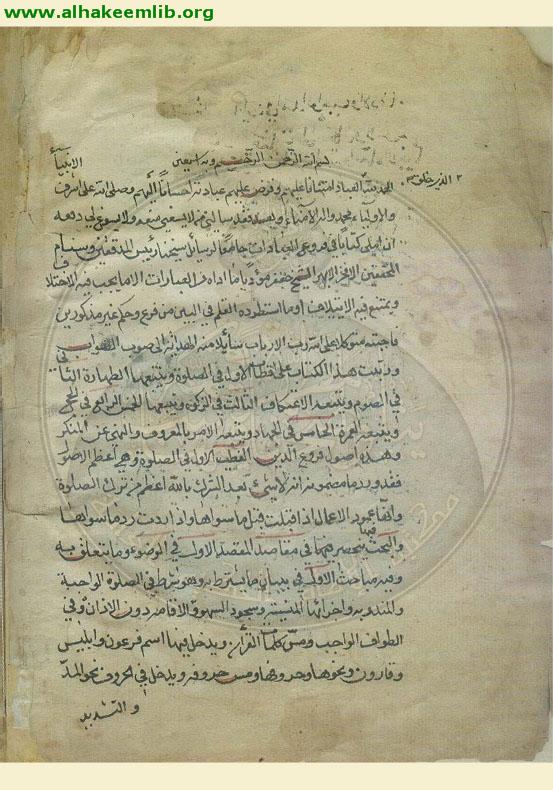 www.alhakeemlib.org
بسم الله الرحمن الرحيم وبه نستعين
الحمد لله العباد امتناناً عليهم وفرض عليهم عبادته احساناً اليهم وصلى الله على اشرف الانبياء
الذين خلق
والاولياء محمد وآله الامناء وبعد فقد سألني من لا يسعني منعه ولا يسوغ لي دفعه
ان املي كتاباً في فروع العبادات جامعاً لرسائل شيخنا رئيس المدققين وسنام
المحققين الافخر الابهر الشيخ جعفر مؤدياً ما اداه في العبارات الا ما يجب فيه الاختلاف
ويمتنع فيه الايتلاف او ما استطرده القلم في البين من فرع وحكم غير مذكورين
فاجبته متوكلا على الله رب الارباب سائلا منه الهداية الى صوب الصواب
ورتبت هذا الكتاب على اقطاب الاول في الصلوة ويتبعها الطهارة الثاني
في الصوم ويتبعه الاعتكاف الثالث في الزكوة ويتبعها الخمس الرابع في الحج
ويتبعه العمرة الخامس في الجهاد ويتبعه الامر بالمعروف والنهي عن المنكر
وهذه اصول فروع الدين القطب الاول في الصلوة وهي اعظم الاصول
فقد ورد ما مضمونه انه لا شيء بعد الشرك بالله اعظم من ترك الصلوة
وانها عمود الاعمال اذا قبلت قبل ما سواها واذا ردت رد ما سواها
والبحث فيها ينحصر في مقاصد المقصد الاول في الوضوء وما يتعلق به
وفيه مباحث الاول في بيان ما يشترط به وهو شرط في الصلوة الواجبة
والمندوبة واجزائها المنسية وسجود السهو والاقامة دون الاذان وفي
الطواف الواجب ومس كلمات القرآن ويدخل فيها اسم فرعون وابليس
وقارون ونحوها وحروفها ومس حروفه ويدخل في الحروف نحو المد
والتشديد